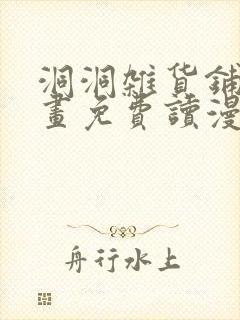 洞洞雜货鋪
畫免費讀漫
舟行水上